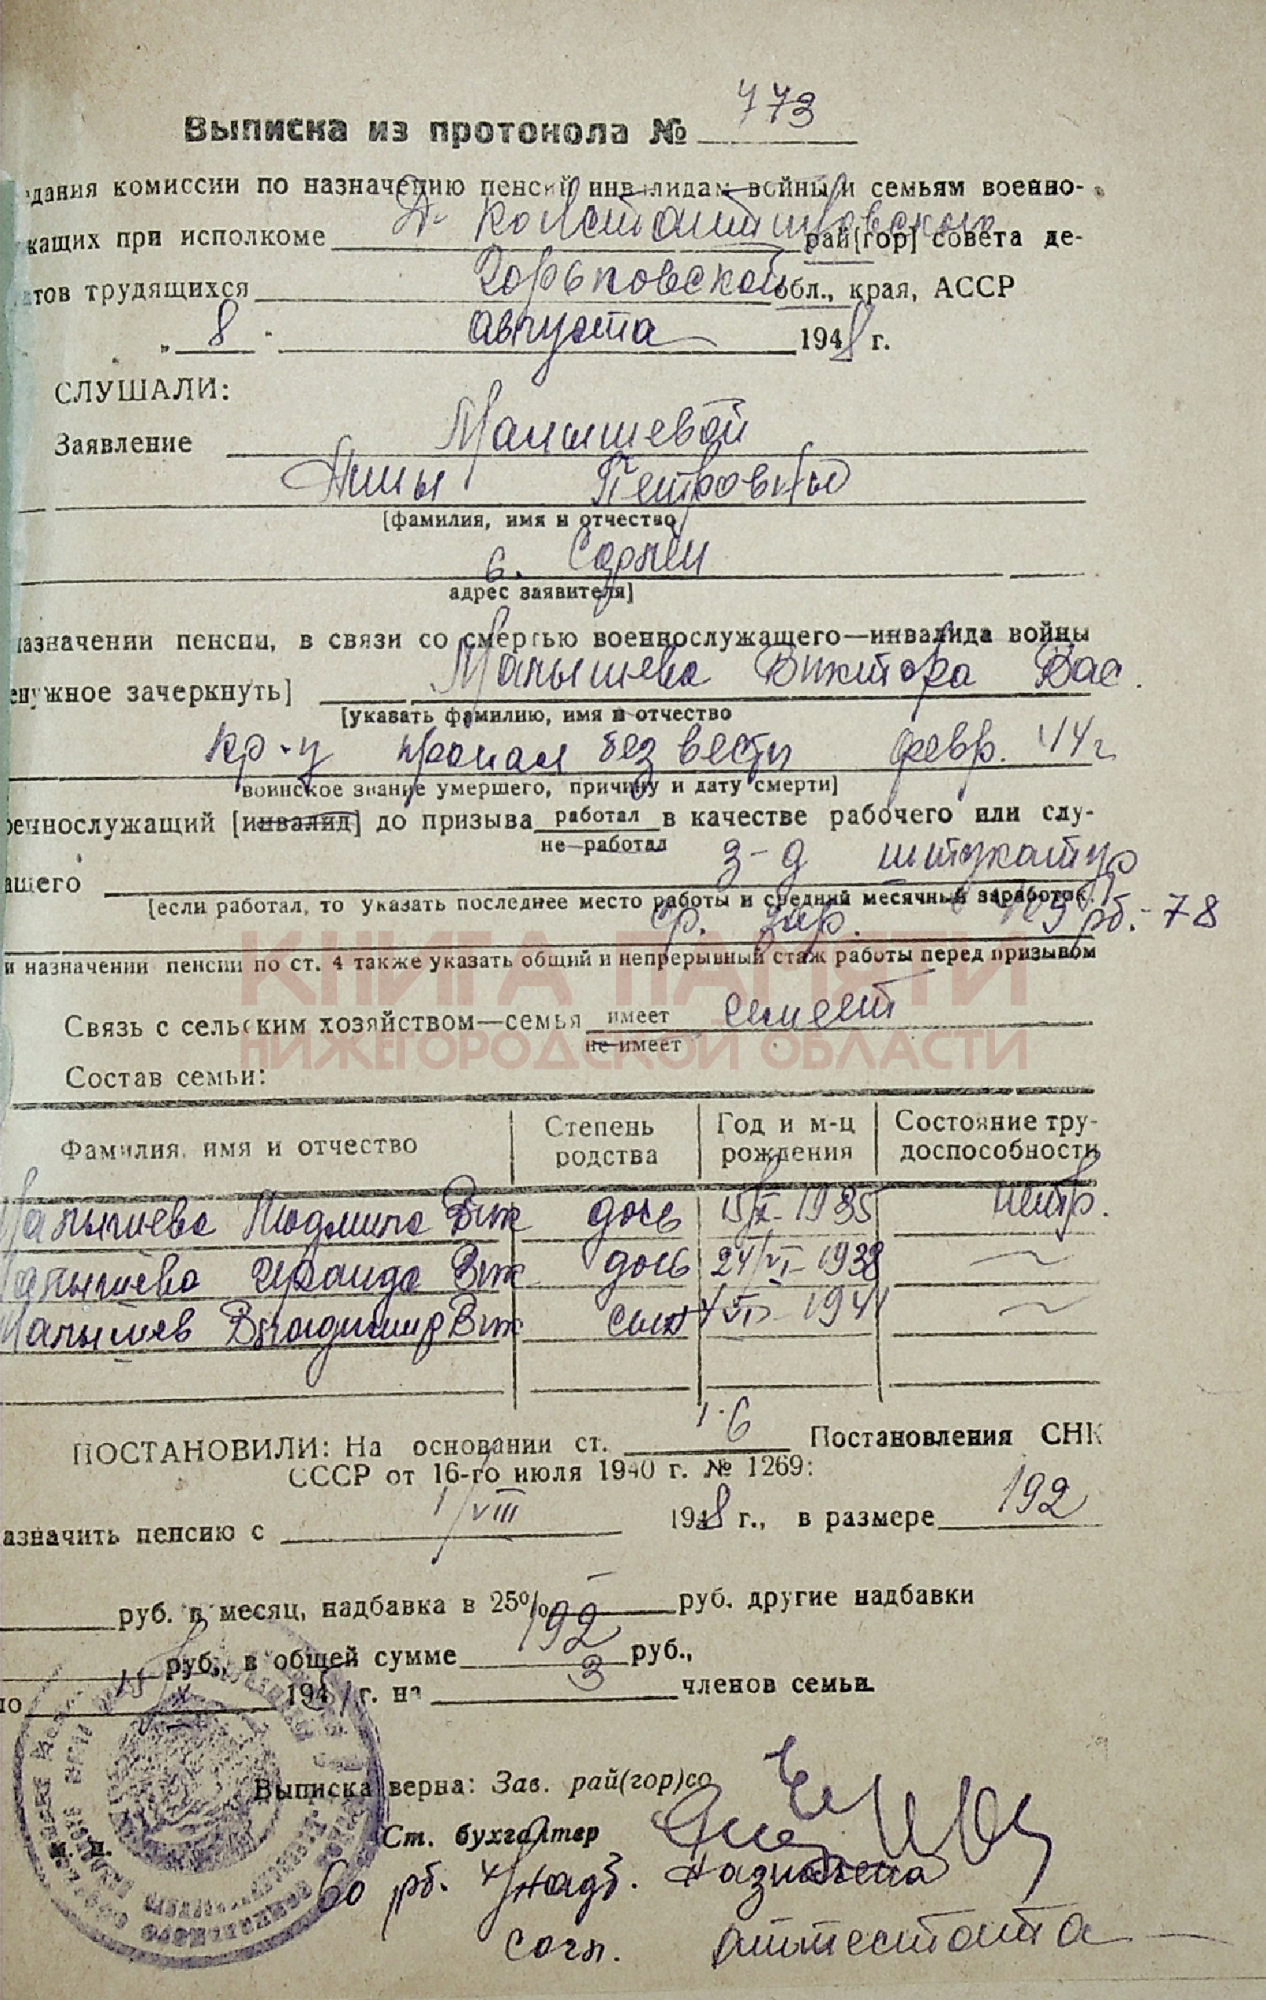 Выписка из протокола № 773
дания комиссии по назначению пенсий инвалидам войны и семьям военно-
жащих при исполкоме Д-Константиновского рай[гор] совета де-
тов трудящихся Горьковской обл., края, АССР
„ 8 " августа 1948 г.
СЛУШАЛИ:
Заявление Малышевой
Нины Петровны
[фамилия, имя и отчество]
с.
адрес заявителя]
назначении пенсии, в связи со смертью военнослужащего—инвалида войны
енужное зачеркнуть] Малышева Виктора Вас.
[указать фамилию, имя и отчество
кр-ц пропал без вести февр. 44 г
воинское звание умершего, причину и дату смерти]
оеннослужащий [инвалид] до призыва работал в качестве рабочего или слу-
не работал
ащего з-д штукатур
[если работал, то указать последнее место работы и средний месячный заработок]
ср. зар. рб.-78
и назначении пенсии по ст. 4 также указать общий и непрерывный стаж работы перед призывом
КНИГА ПАМЯТИ
НИЖЕГОРОДСКОЙ ОБЛАСТИ
Связь с сельским хозяйством—семья имеет
не имеет
Состав семьи:
Фамилия, имя и отчество Степень родства Год и м-ц рождения Состояние тру-доспособности
Малышева Людмила Вик дочь 15/X-1935 нетр.
Малышева Ираида Вик дочь 24/VI-1938
Малышев Владимир Вик сын 1941
ПОСТАНОВИЛИ: На основании ст. 6 Постановления СНК
СССР от 16-го июля 1940 г. № 1269:
азначить пенсию с 1/VIII 1948 г., в размере 192
руб. в месяц, надбавка в 25% - руб. другие надбавки
руб., в общей сумме 192 руб.,
по 15/X 195 г. на 3 членов семьи.
Выписка верна: Зав. рай(гор)со
м. п.
Ст. бухгалтер
60 рб. надб. назначена
согл. аттестата